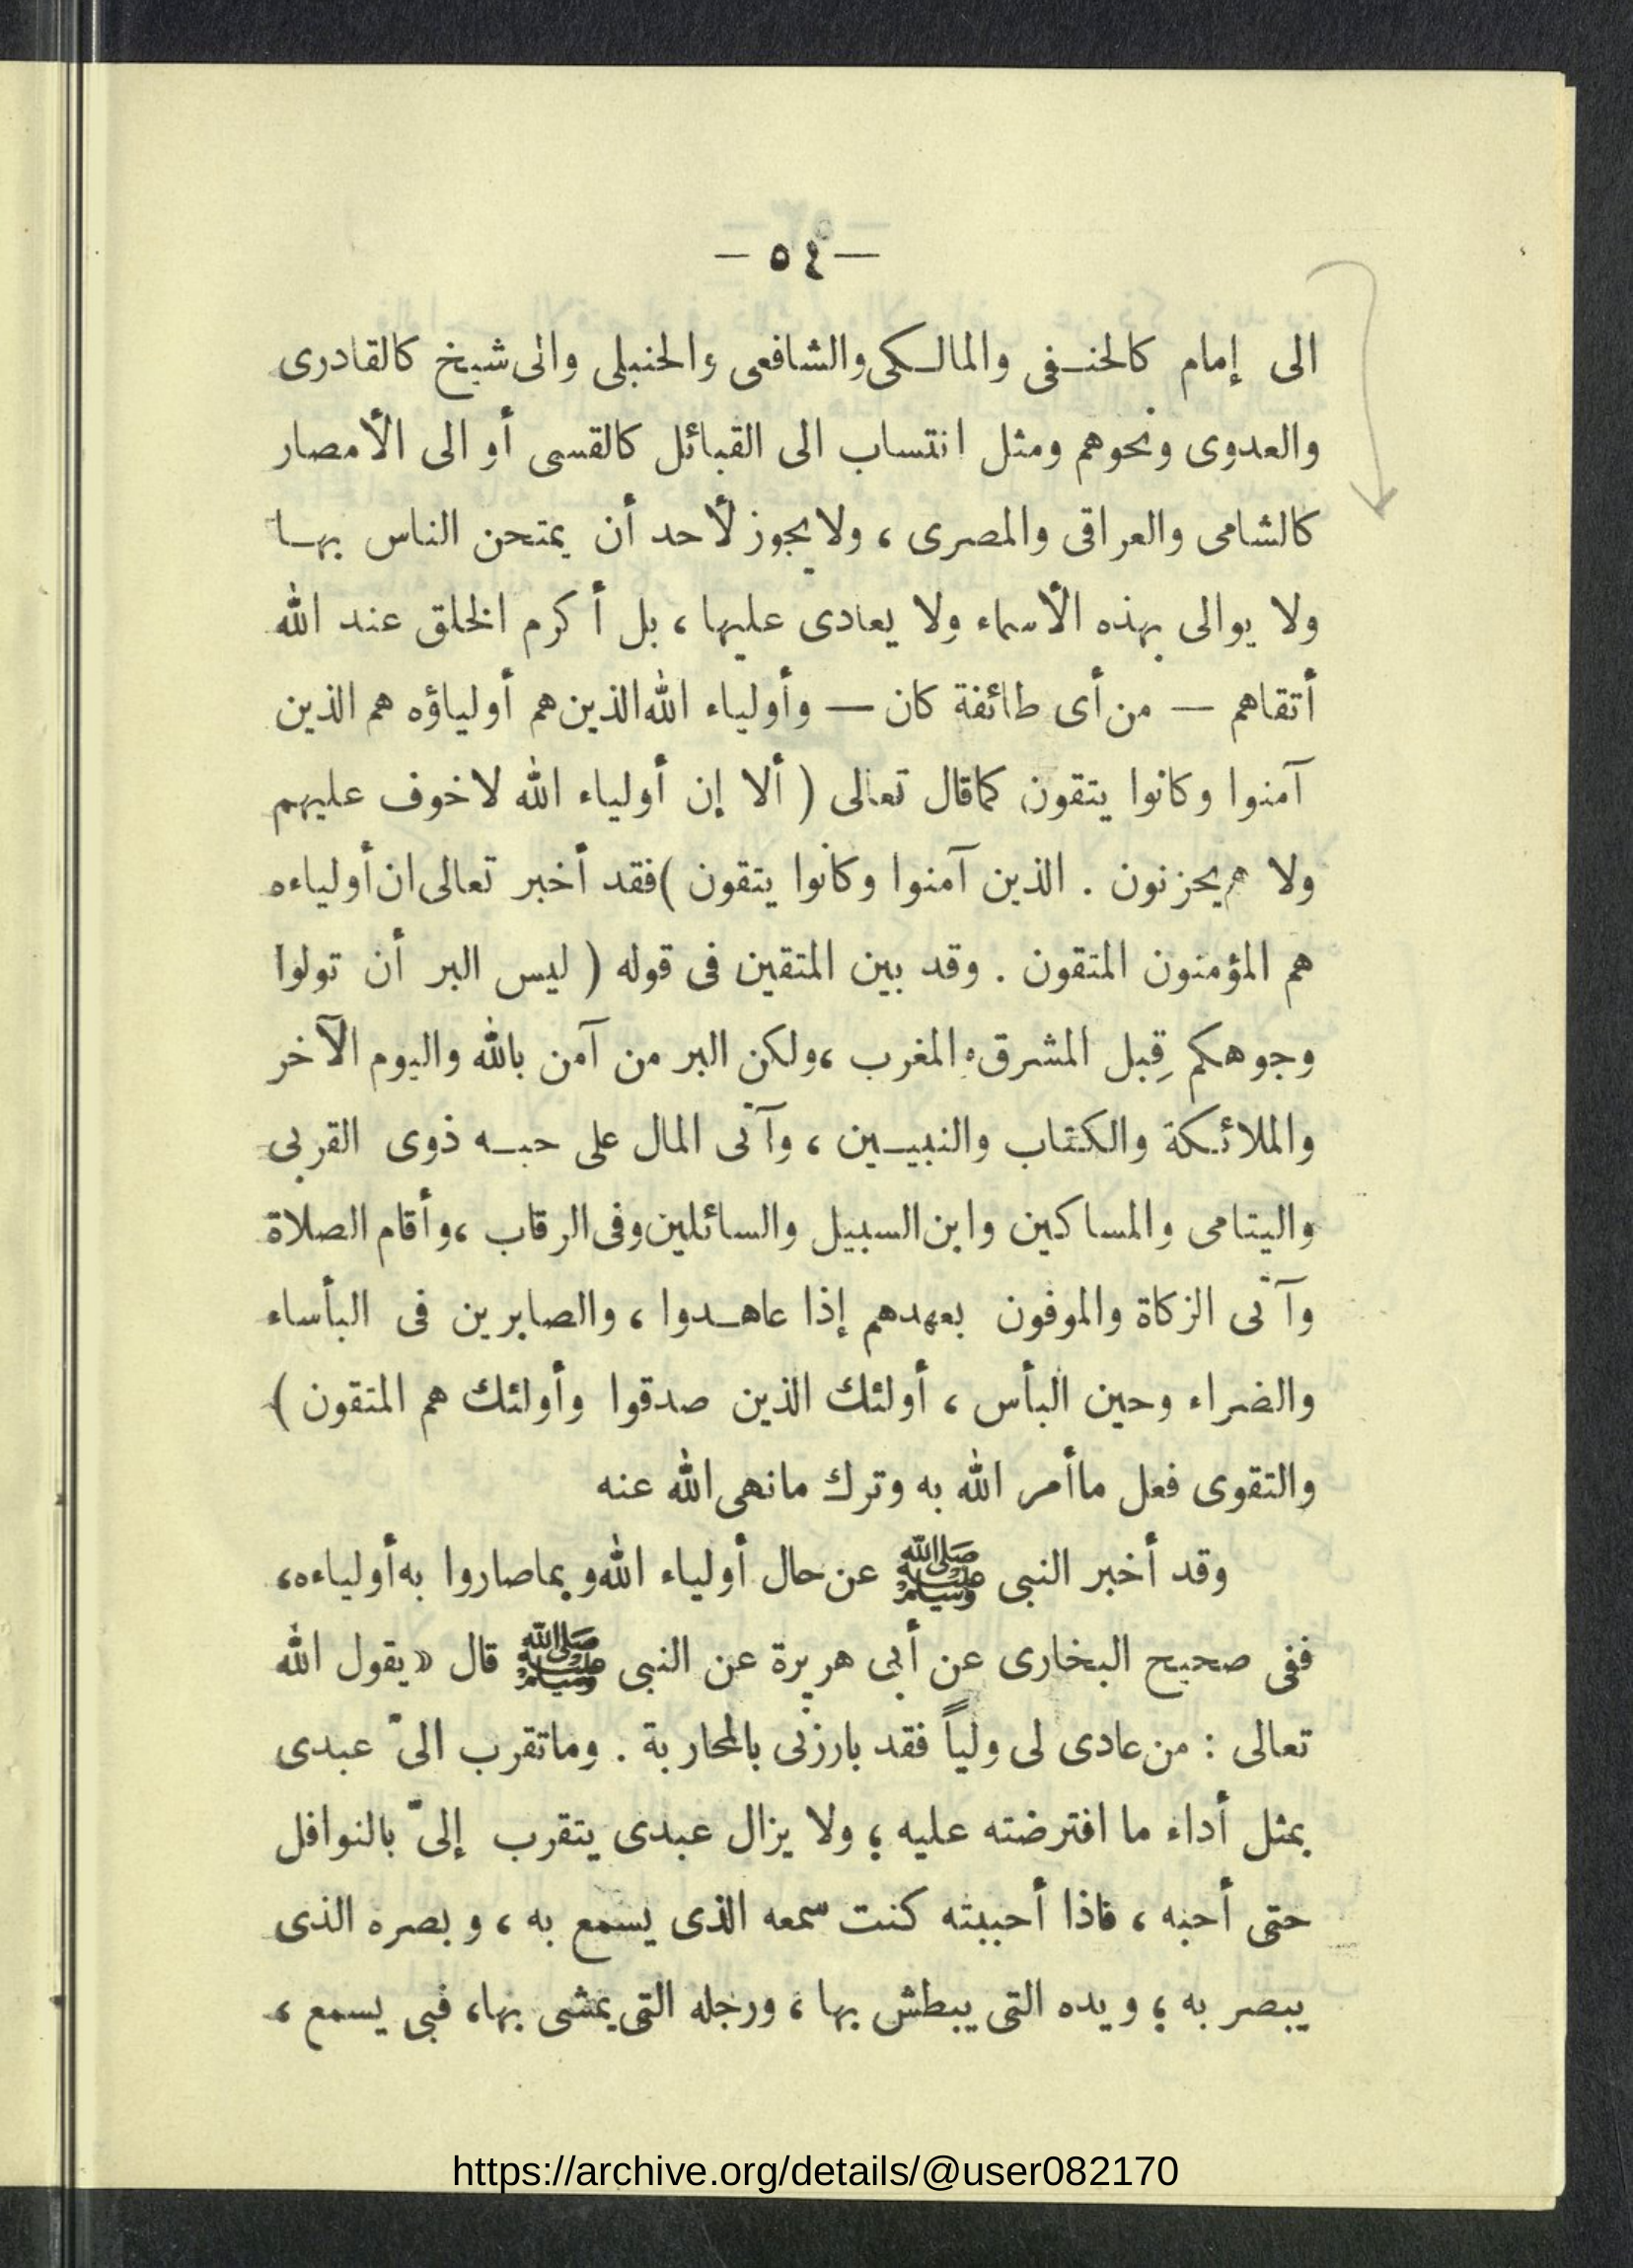 — ٥٤ —
الى إمام كالحنفى والمالكى والشافعى والحنبلى والى شيخ كالقادرى
والعدوى ونحوهم ومثل انتساب الى القبائل كالقسى أو الى الأمصار
كالشامى والعراقى والمصرى ، ولا يجوز لأحد أن يمتحن الناس بها
ولا يوالى بهذه الأسماء ولا يعادى عليها ، بل أكرم الخلق عند الله
أتقاهم — من أى طائفة كان — وأولياء الله الذين هم أولياؤه هم الذين
آمنوا وكانوا يتقون كما قال تعالى ( ألا إن أولياء الله لا خوف عليهم
ولا هم يحزنون . الذين آمنوا وكانوا يتقون ) فقد أخبر تعالى ان أولياءه
هم المؤمنون المتقون . وقد بين المتقين فى قوله ( ليس البر أن تولوا
وجوهكم قِبل المشرق والمغرب ، ولكن البر من آمن بالله واليوم الآخر
والملائكة والكتاب والنبيين ، وآتى المال على حبه ذوى القربى
واليتامى والمساكين وابن السبيل والسائلين وفى الرقاب ، وأقام الصلاة
وآتى الزكاة والموفون بعهدهم إذا عاهدوا ، والصابرين فى البأساء
والضراء وحين البأس ، أولئك الذين صدقوا وأولئك هم المتقون )
والتقوى فعل ما أمر الله به وترك ما نهى الله عنه
وقد أخبر النبى ﷺ عن حال أولياء الله وبما صاروا به أولياءه ،
ففى صحيح البخارى عن أبى هريرة عن النبى ﷺ قال « يقول الله
تعالى : من عادى لى ولياً فقد بارزنى بالمحاربة . وما تقرب الىّ عبدى
بمثل أداء ما افترضته عليه ؛ ولا يزال عبدى يتقرب إلىّ بالنوافل
حتى أحبه ، فاذا أحببته كنت سمعه الذى يسمع به ، وبصره الذى
يبصر به ؛ ويده التى يبطش بها ، ورجله التى يمشى بها ، فبى يسمع ،
https://archive.org/details/@user082170